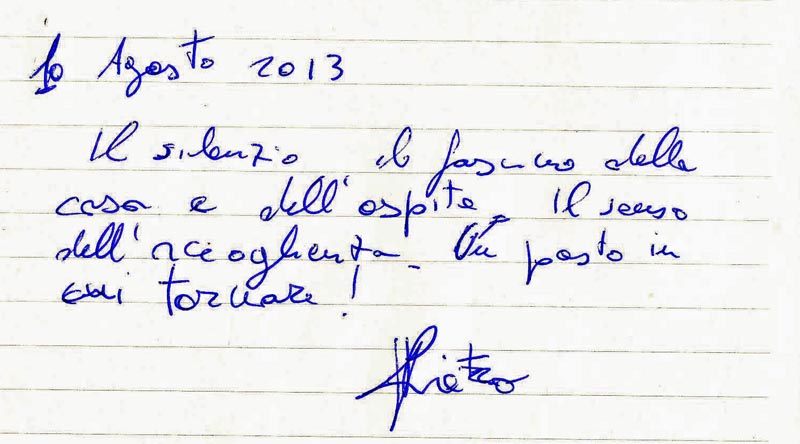 10 Agosto 2013
Il silenzio il fascino della
casa e dell'ospite. Il senso
dell'accoglienza. Un posto in
cui tornare!
Pietro